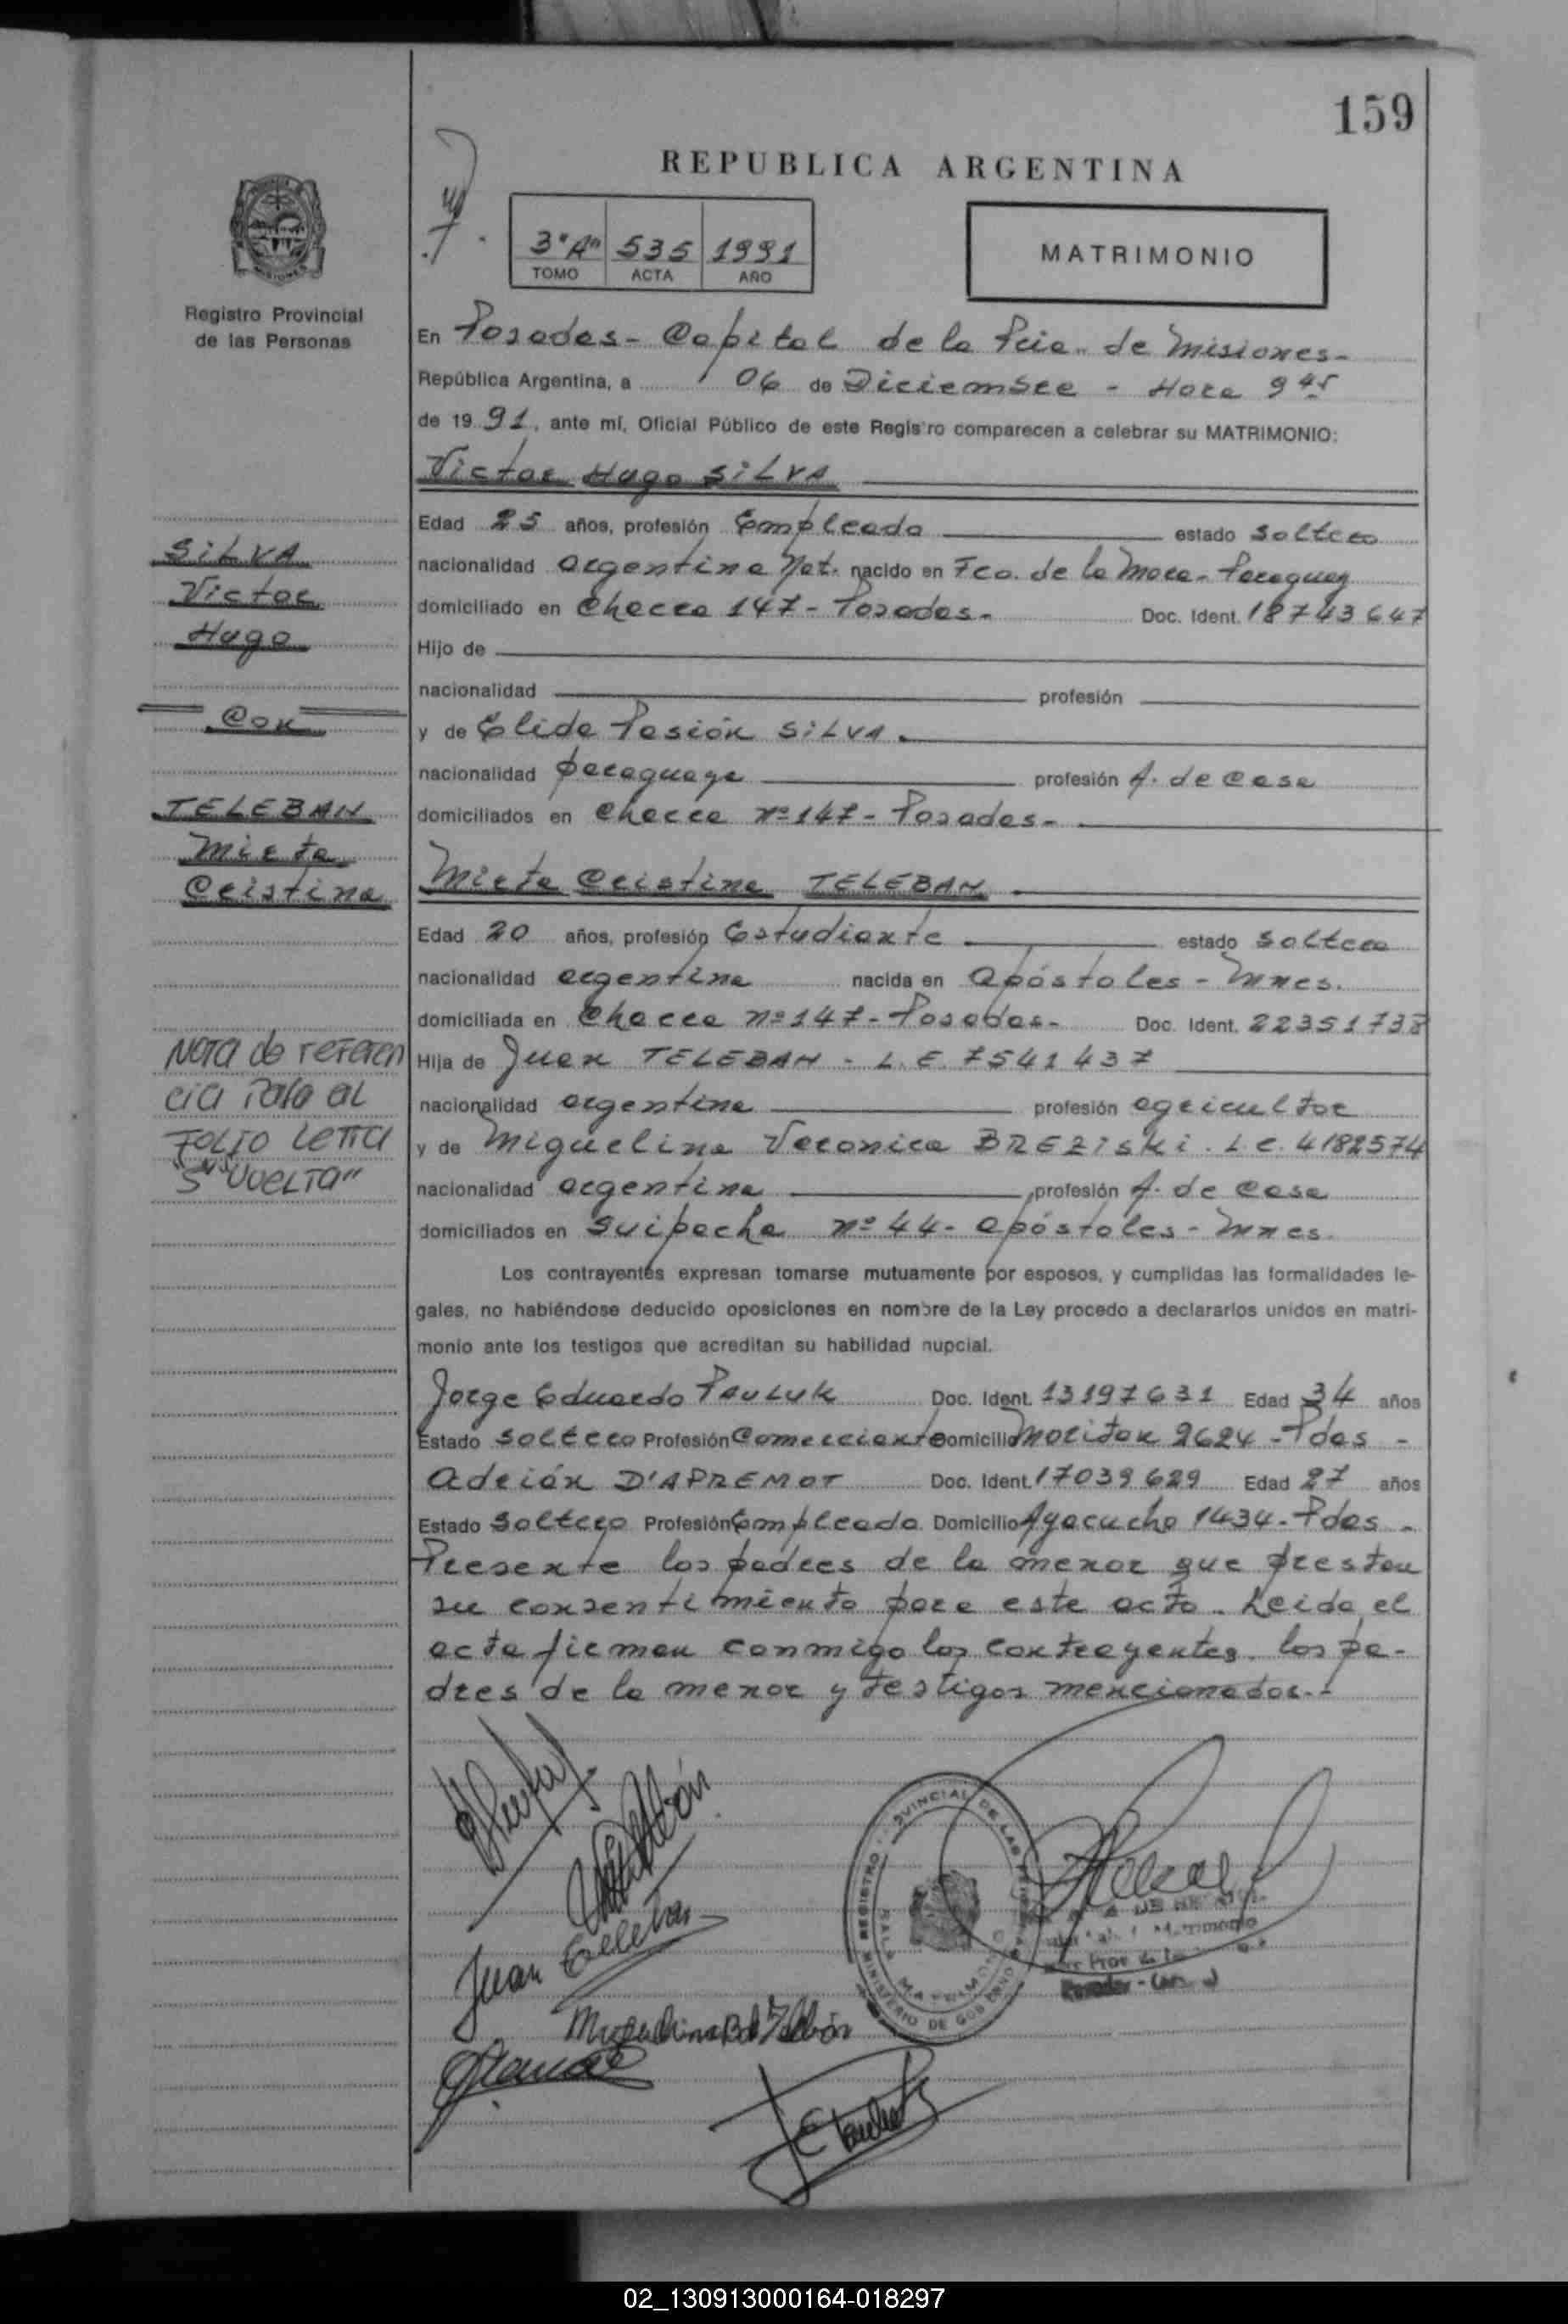 159
REPUBLICA ARGENTINA
3º"A" 535 1991
TOMO ACTA AÑO
MATRIMONIO
Registro Provincial
de las Personas
En Posadas - Capital de la Pcia. de Misiones -
República Argentina, a 06 de Diciembre - Hora 9 45
de 19 91, ante mí, Oficial Público de este Registro comparecen a celebrar su MATRIMONIO:
Victor Hugo SILVA
Edad 25 años, profesión Empleado estado soltero
nacionalidad argentina Nat. nacido en Fco. de la Mora - Paraguay
domiciliado en Chacra 147 - Posadas - Doc. Ident. 18743647
Hijo de
nacionalidad profesión
y de Elida Pasión SILVA.
nacionalidad paraguaya profesión A. de Casa
domiciliados en Chacra nº 147 - Posadas -
Mirta Cristina TELEBAN
Edad 20 años, profesión Estudiante estado soltera
nacionalidad argentina nacida en Apóstoles - Mnes.
domiciliada en Chacra nº 147 - Posadas - Doc. Ident. 22351738
Hija de Juan TELEBAN - L.E. 7541437
nacionalidad argentina profesión agricultor
y de Miguelina Veronica BREZISKI. L.C. 4182574
nacionalidad argentina profesión A. de Casa
domiciliados en Suipacha nº 44 - Apóstoles - Mnes.
Los contrayentes expresan tomarse mutuamente por esposos, y cumplidas las formalidades le-
gales, no habiéndose deducido oposiciones en nombre de la Ley procedo a declararlos unidos en matri-
monio ante los testigos que acreditan su habilidad nupcial.
Jorge Eduardo PAULUK Doc. Ident. 13197631 Edad 34 años
Estado soltero Profesión Comerciante Domicilio Moritan 2624 - Pdas -
Adrián D'APREMOT Doc. Ident. 17039629 Edad 27 años
Estado soltero Profesión Empleado Domicilio Ayacucho 1434 - Pdas -
Presente los padres de la menor que prestan
su consentimiento para este acto. Leida el
acta firman conmigo los contrayentes, los pa-
dres de la menor y testigos mencionados.-
SILVA
Victor
Hugo
Con
TELEBAN
Mirta
Cristina
Nota de referen
cia Paso al
FOLIO LETRA
"S" VUELTA"
Juan Teleban
REGISTRO PROVINCIAL DE LAS PERSONAS
MINISTERIO DE GOBIERNO
02_130913000164-018297